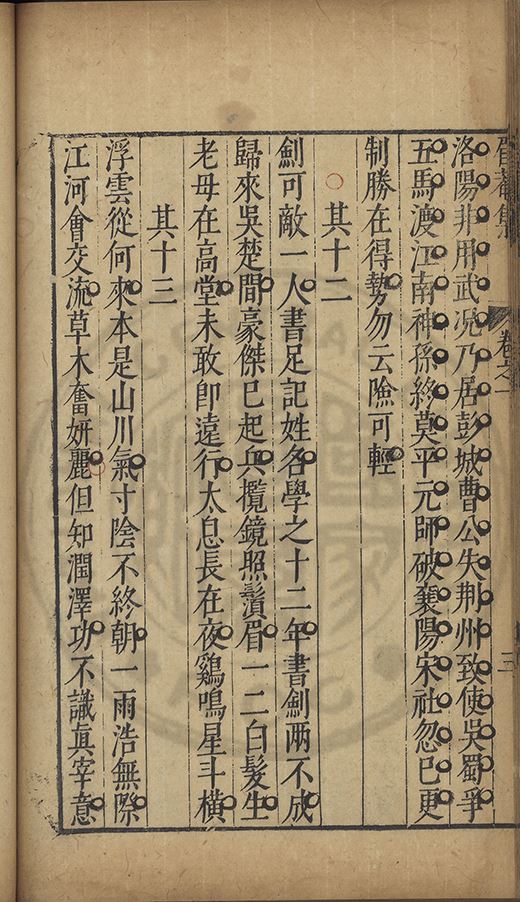 集
卷之一
三
洛陽非用武況乃居彭城曹公失荆州致使吳蜀爭
五馬渡江南神孫終莫平元師破襄陽宋社忽已更
制勝在得勢勿云險可輕
其十二
劍可敵一人書足記姓名學之十二年書劍兩不成
歸來吳楚間豪傑已起兵攬鏡照鬚眉一二白髮生
老母在高堂未敢即遠行太息長在夜鷄鳴星斗橫
其十三
浮雲從何來本是山川氣寸陰不終朝一雨浩無際
江河會交流草木奮妍麗但知潤澤功不識真宰意